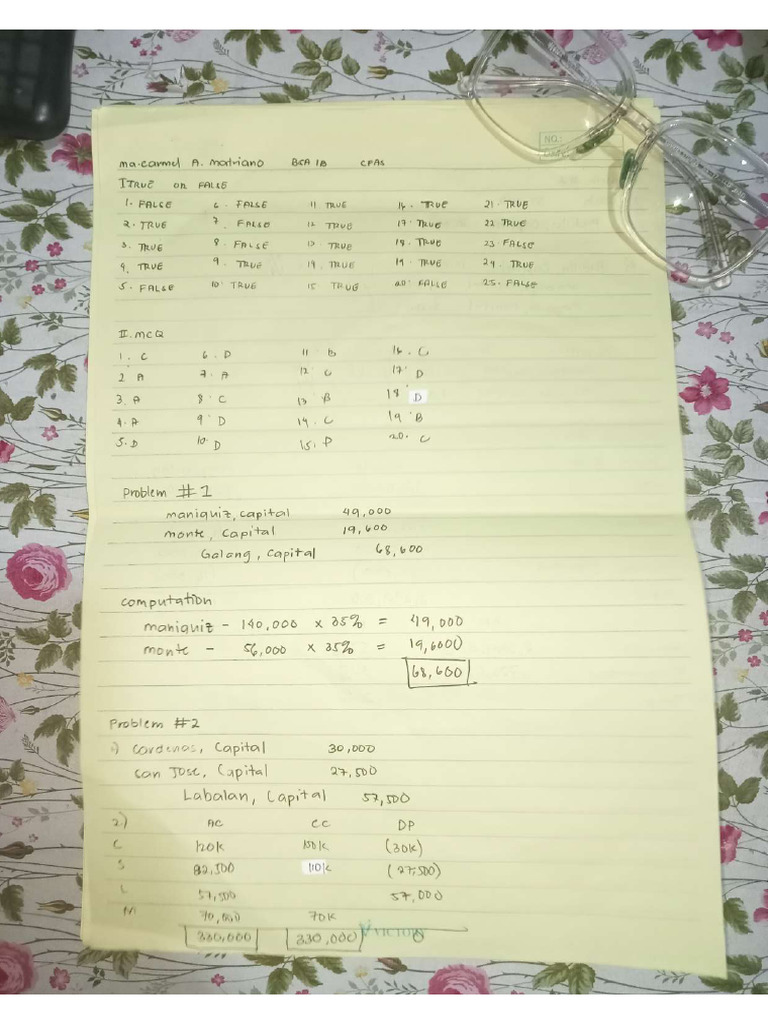 NO:
ma. carmel A. Matriano BSA 1B CPAs
I TRUE OR FALSE
1. FALSE 6. FALSE 11 TRUE 16. TRUE 21. TRUE
2. TRUE 7. FALSE 12 TRUE 17. TRUE 22 TRUE
3. TRUE 8. FALSE 13. TRUE 18. TRUE 23 FALSE
4. TRUE 9. TRUE 14. TRUE 19. TRUE 24. TRUE
5. FALSE 10. TRUE 15 TRUE 20. FALSE 25. FALSE
II. MCQ
1. C 6. D 11 B 16. C
2 A 7. A 12 C 17. D
3. A 8. C 13 B 18 D
4. A 9. D 14. C 19 B
5. D 10. D 15. D 20. C
Problem #1
maniquiz, capital 49,000
monte, Capital 19,600
Galang, Capital 68,600
computation
maniquiz - 140,000 x 35% = 49,000
monte - 56,000 x 35% = 19,6000
68,600
Problem #2
1) Cardenas, Capital 30,000
San Jose, Capital 27,500
Labalan, Capital 57,500
2.) AC CC DP
C 120k 150k (30k)
S 82,500 110k (27,500)
L 57,500 57,000
M 70,000 70k
330,000 330,000 0
VICTORY